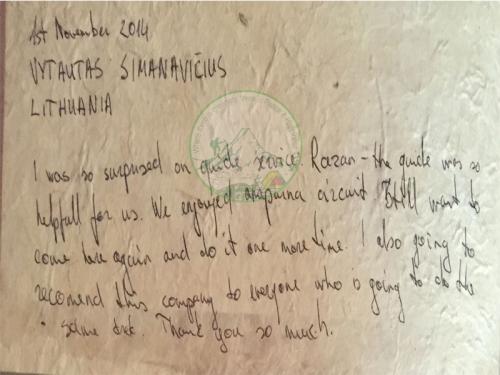 1st November 2014
VYTAUTAS SIMANAVIČIUS
LITHUANIA
I was so surprised on guide service. Razan - the guide was so
helpfall for us. We enjoyed annapurna circuit. Still want to
come here again and do it one more time. I also going to
recomend this company to everyone who is going to do the
same trek. Thank you so much.